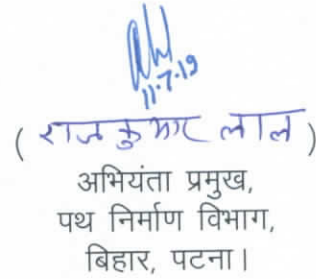 11.7.19
( राज कुमार लाल )
अभियंता प्रमुख,
पथ निर्माण विभाग,
बिहार, पटना।